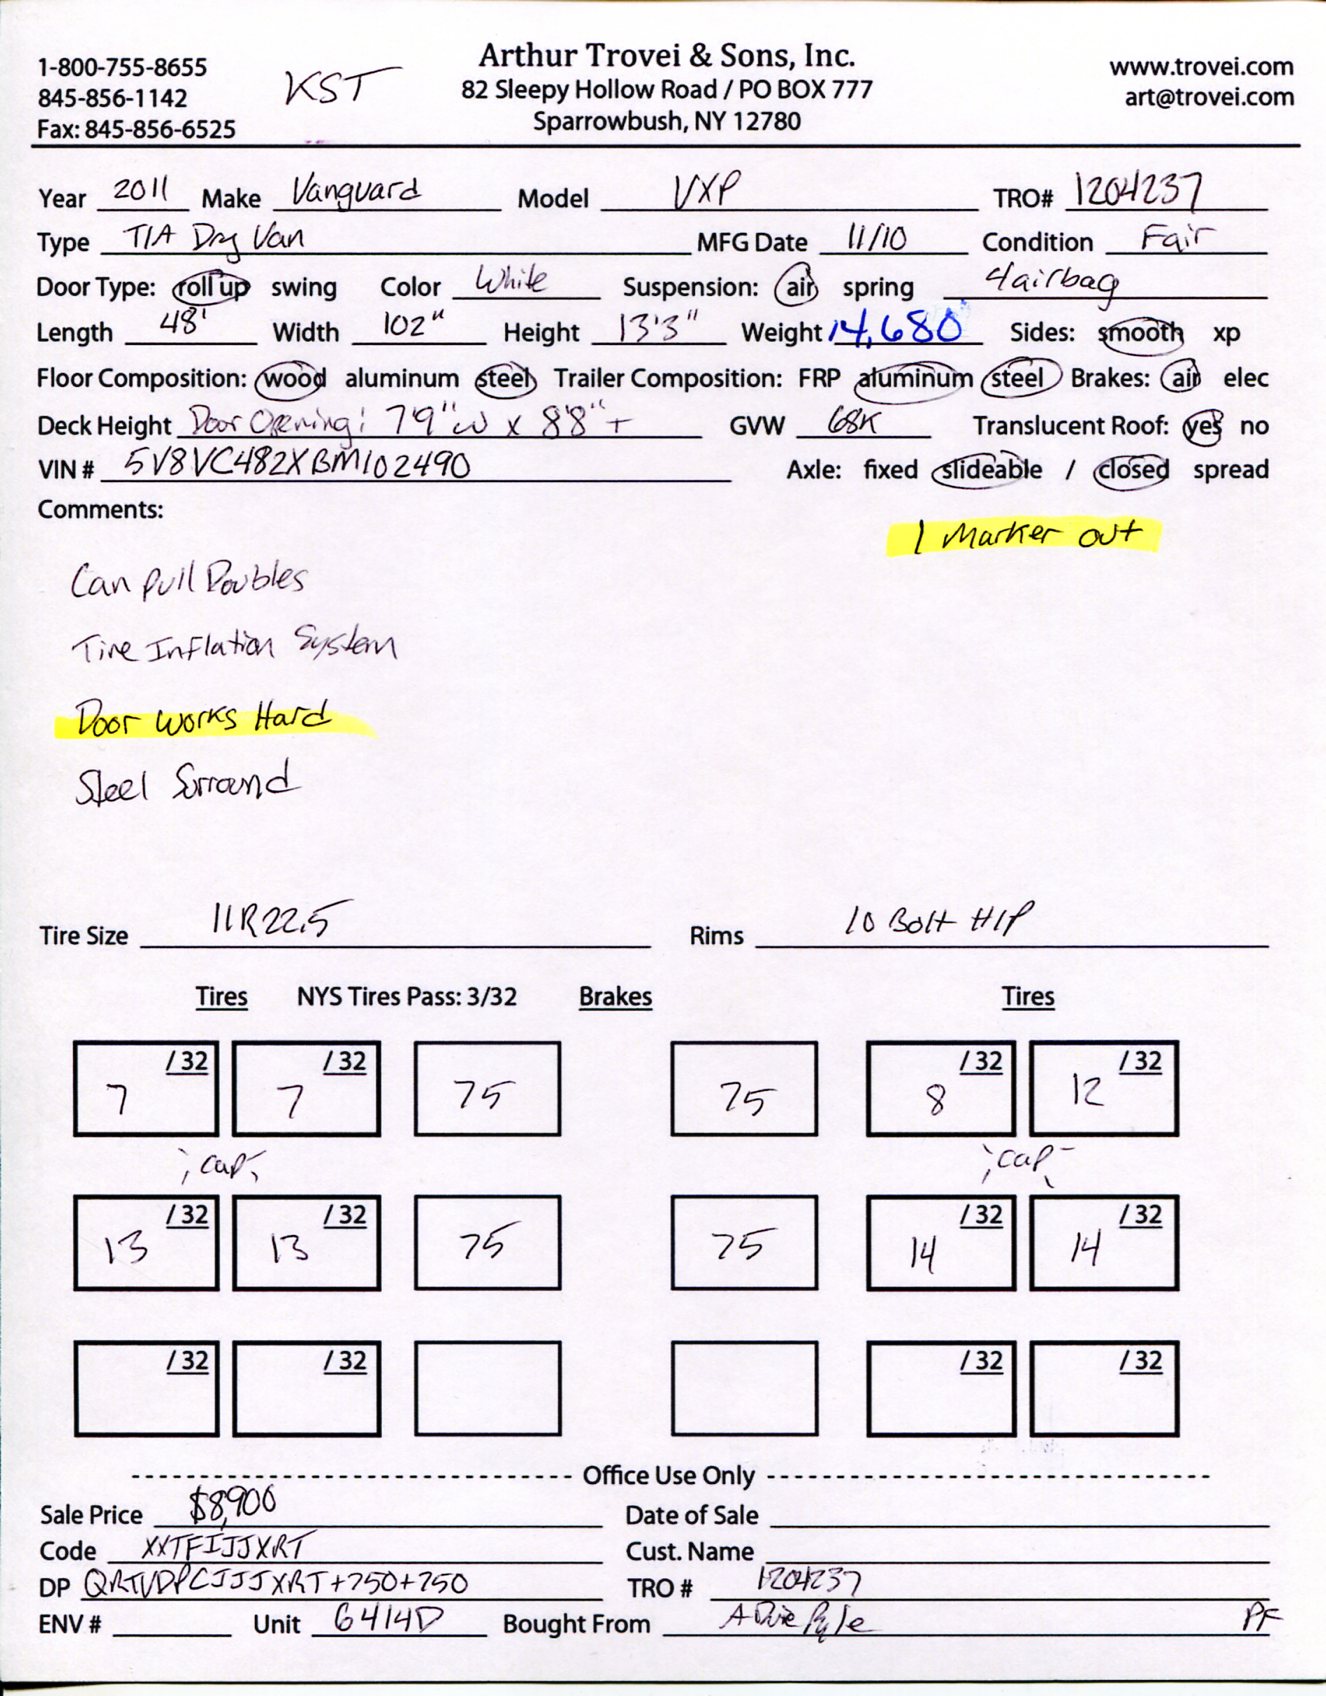 1-800-755-8655
845-856-1142
Fax: 845-856-6525
KST
Arthur Trovei & Sons, Inc.
82 Sleepy Hollow Road / PO BOX 777
Sparrowbush, NY 12780
www.trovei.com
art@trovei.com
Year 2011 Make Vanguard Model VXP TRO# 1204237
Type T/A Dry Van MFG Date 11/10 Condition Fair
Door Type: roll up swing Color White Suspension: air spring 4 airbag
Length 48' Width 102" Height 13'3" Weight 14,680 Sides: smooth xp
Floor Composition: wood aluminum steel Trailer Composition: FRP aluminum steel Brakes: air elec
Deck Height Door Opening: 7'9"W x 8'8"+ GVW 68K Translucent Roof: yes no
VIN # 5V8VC482XBM102490 Axle: fixed slideable / closed spread
Comments:
1 Marker out
Can pull Doubles
Tire Inflation System
Door works Hard
Steel Surround
Tire Size 11R22.5 Rims 10 Bolt H/P
Tires NYS Tires Pass: 3/32 Brakes Tires
7 /32 7 /32 75 75 8 /32 12 /32
cap cap
13 /32 13 /32 75 75 14 /32 14 /32
/32 /32 /32 /32
Office Use Only
Sale Price $8,900 Date of Sale
Code XXTFIJJXRT Cust. Name
DP QRTVDPCJJJXRT+750+750 TRO # 1204237
ENV # Unit 6414D Bought From A Duie Pyle PF